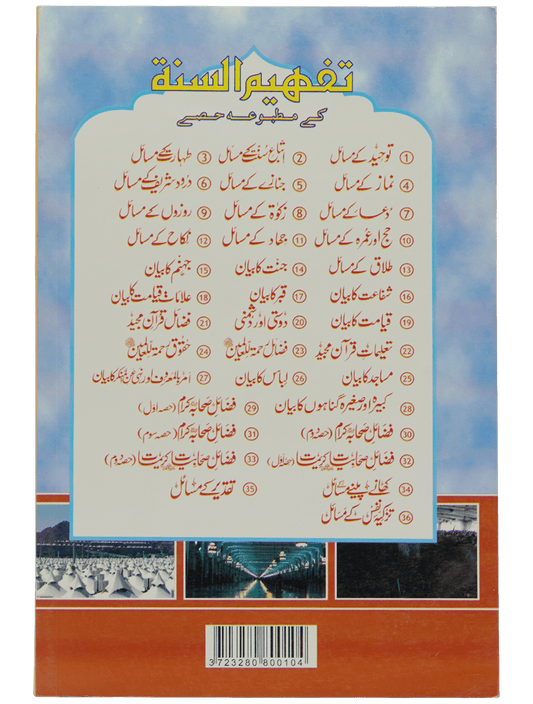 تفہیم السنۃ
کے مطبوعہ حصے
1 توحید کے مسائل 2 اتباع سنت کے مسائل 3 طہارت کے مسائل
4 نماز کے مسائل 5 جنازے کے مسائل 6 درود شریف کے مسائل
7 دُعا کے مسائل 8 زکوٰۃ کے مسائل 9 روزوں کے مسائل
10 حج اور عمرہ کے مسائل 11 جہاد کے مسائل 12 نکاح کے مسائل
13 طلاق کے مسائل 14 جنت کا بیان 15 جہنم کا بیان
16 شفاعت کا بیان 17 قبر کا بیان 18 علاماتِ قیامت کا بیان
19 قیامت کا بیان 20 دوستی اور دشمنی 21 فضائل قرآن مجید
22 تعلیماتِ قرآن مجید 23 فضائل رحمۃ للعالمین ﷺ 24 حقوق رحمۃ للعالمین ﷺ
25 مساجد کا بیان 26 لباس کا بیان 27 امر بالمعروف اور نہی عن المنکر کا بیان
28 کبیرہ اور صغیرہ گناہوں کا بیان 29 فضائل صحابہ کرام (حصہ اول)
30 فضائل صحابہ کرام (حصہ دوم) 31 فضائل صحابہ کرام (حصہ سوم)
32 فضائل صحابیات (حصہ اول) 33 فضائل صحابیات (حصہ دوم)
34 کھانے پینے کے مسائل 35 تقدیر کے مسائل
36 تزکیہ نفس کے مسائل
3723280800104